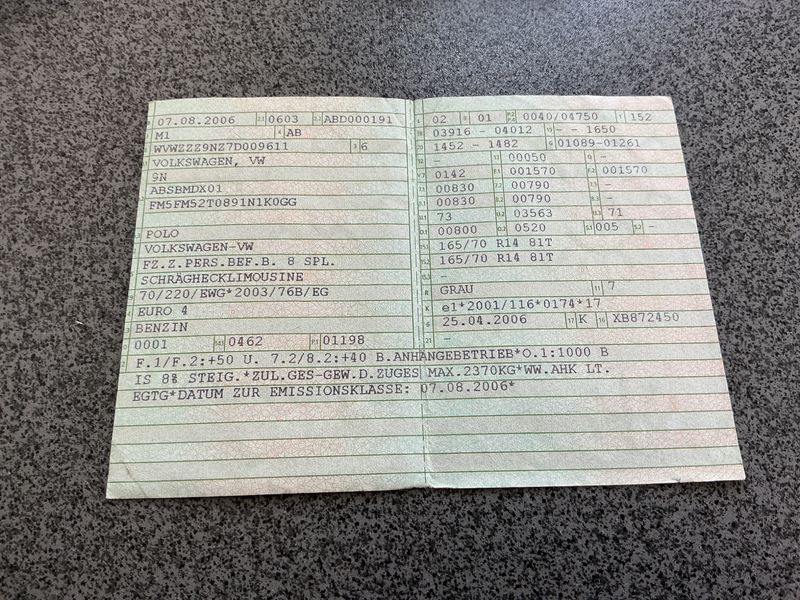 07.08.2006 2.1 0603 2.2 ABD000191
M1 4 AB
WVWZZZ9NZ7D009611 3 6
VOLKSWAGEN, VW
9N
ABSBMDX01
FM5FM52T0891N1K0GG
POLO
VOLKSWAGEN-VW
FZ.Z.PERS.BEF.B. 8 SPL.
SCHRÄGHECKLIMOUSINE
70/220/EWG*2003/76B/EG
EURO 4
BENZIN
0001 14.1 0462 P.1 01198
L 02 9 01 P.2 P.4 0040/04750 T 152
18 03916 - 04012 19 - - 1650
20 1452 - 1482 G 01089-01261
12 - 13 00050 Q -
V.7 0142 F.1 001570 F.2 001570
7.1 00830 7.2 00790 7.3 -
8.1 00830 8.2 00790 8.3 -
U.1 73 U.2 03563 U.3 71
O.1 00800 O.2 0520 S.1 005 S.2 -
15.1 165/70 R14 81T
15.2 165/70 R14 81T
15.3 -
R GRAU 11 7
K e1*2001/116*0174*17
6 25.04.2006 17 K 16 XB872450
21 -
F.1/F.2:+50 U. 7.2/8.2:+40 B.ANHÄNGEBETRIEB*O.1:1000 B
IS 8% STEIG.*ZUL.GES-GEW.D.ZUGES MAX.2370KG*WW.AHK LT.
EGTG*DATUM ZUR EMISSIONSKLASSE: 07.08.2006*